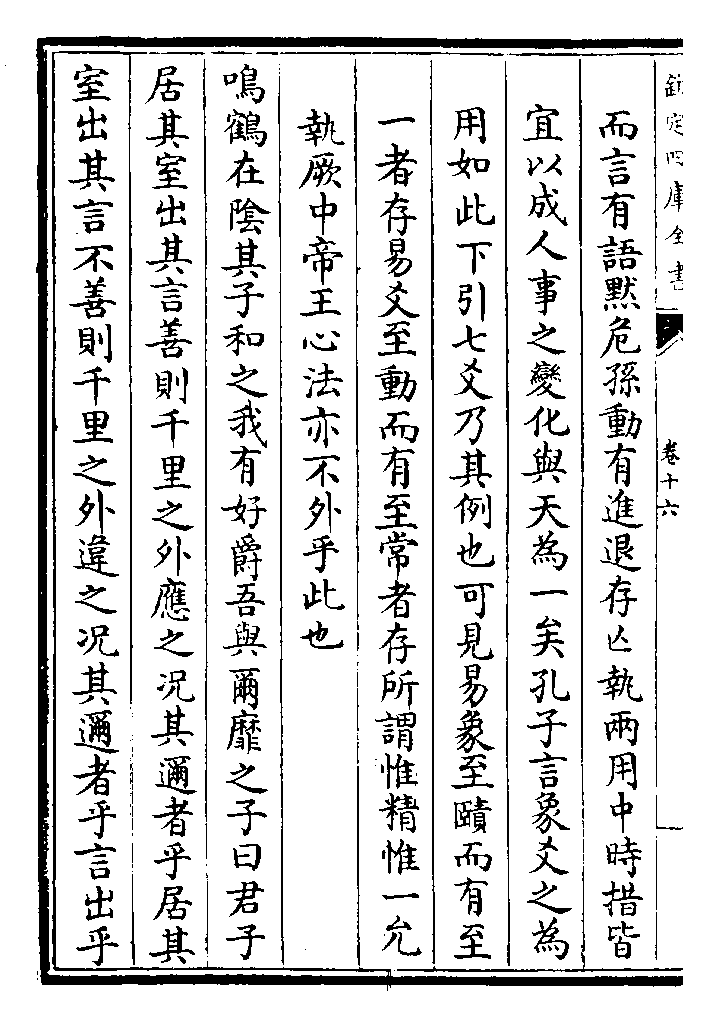 欽定四庫全書
卷十六
而言有語默危孫動有進退存亡執兩用中時措皆
宜以成人事之變化與天為一矣孔子言象爻之為
用如此下引七爻乃其例也可見易象至賾而有至
一者存易爻至動而有至常者存所謂惟精惟一允
執厥中帝王心法亦不外乎此也
鳴鶴在陰其子和之我有好爵吾與爾靡之子曰君子
居其室出其言善則千里之外應之况其邇者乎居其
室出其言不善則千里之外違之况其邇者乎言出乎